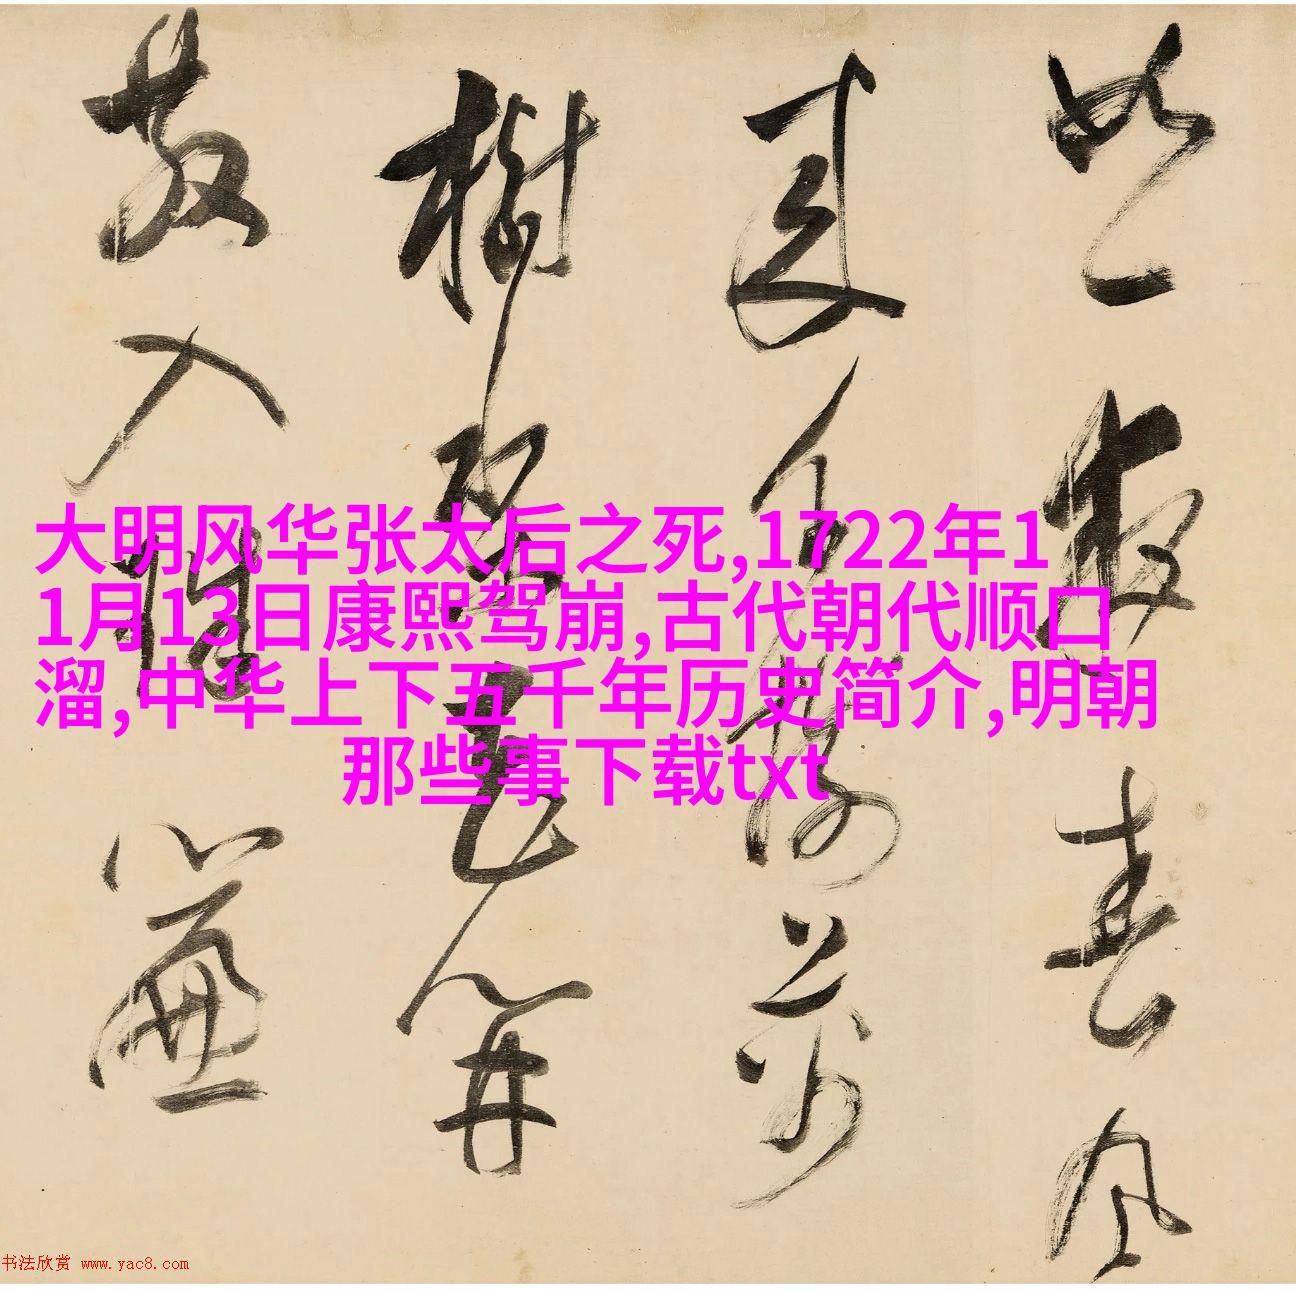 如一夜春風
來千樹萬
樹梨花開
散入簾
大明风华张太后之死,1722年1
1月13日康熙驾崩,古代朝代顺口
溜,中华上下五千年历史简介,明朝
那些事下载txt
书法欣赏 www.yac8.com